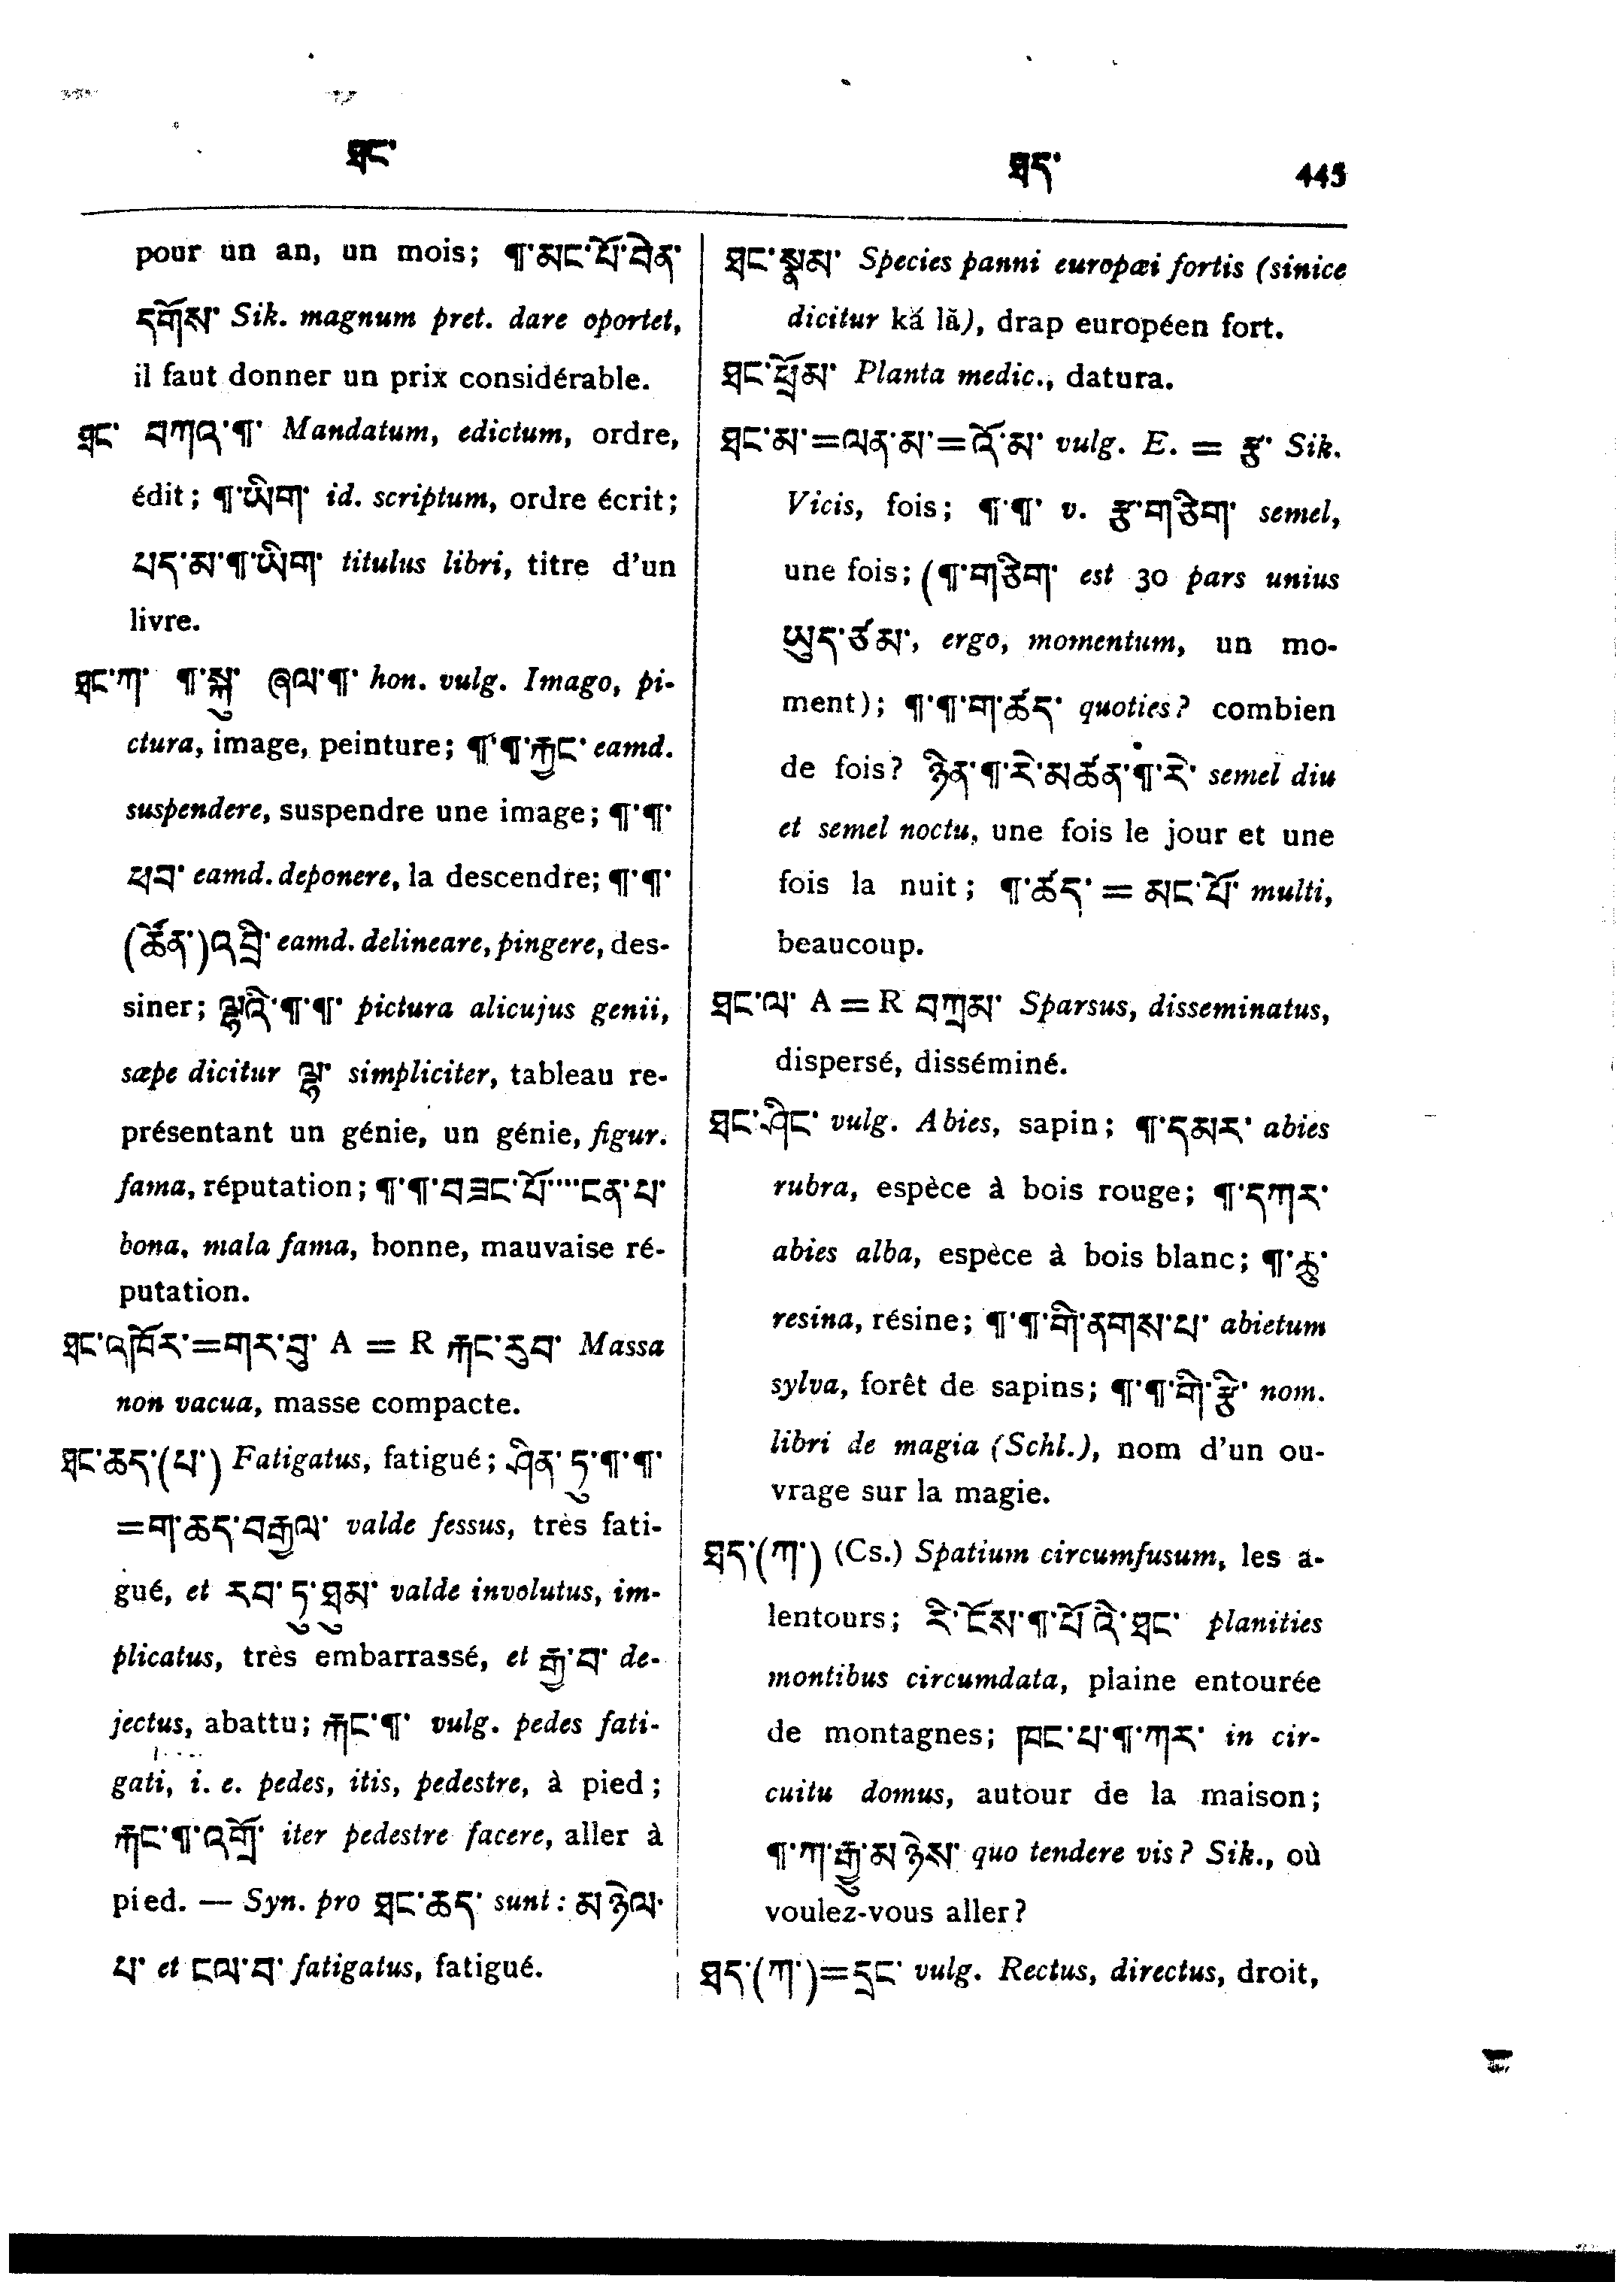 ཐང་
ཐད་ 445
pour un an, un mois; ¶་མང་པོ་བིན་
དགོས་ Sik. magnum pret. dare oportet,
il faut donner un prix considérable.
ཐང་ བཀའ་¶་ Mandatum, edictum, ordre,
édit; ¶་ཡིག་ id. scriptum, ordre écrit;
པད་མ་¶་ཡིག་ titulus libri, titre d'un
livre.
ཐང་ཀ་ ¶་སྐུ་ ཞལ་¶་ hon. vulg. Imago, pi-
ctura, image, peinture; ¶་¶་རྐྱང་ eamd.
suspendere, suspendre une image; ¶་¶་
ཕབ་ eamd. deponere, la descendre; ¶་¶་
(ཚོན་)འབྲི་ eamd. delineare, pingere, des-
siner; ལྷའི་¶་¶་ pictura alicujus genii,
sæpe dicitur ལྷ་ simpliciter, tableau re-
présentant un génie, un génie, figur.
fama, réputation; ¶་¶་བཟང་པོ་...ངན་པ་
bona, mala fama, bonne, mauvaise ré-
putation.
ཐང་འཁོར་=གར་བུ་ A = R རྐང་རུབ་ Massa
non vacua, masse compacte.
ཐང་ཆད་(པ་) Fatigatus, fatigué; ཤིན་ཏུ་¶་¶་
=ག་ཆད་བརྒྱལ་ valde fessus, très fati-
gué, et རབ་ཏུ་ཐུམ་ valde involutus, im-
plicatus, très embarrassé, et རྒྱ་བ་ de-
jectus, abattu; རྐང་¶་ vulg. pedes fati-
gati, i. e. pedes, itis, pedestre, à pied;
རྐང་¶་འགྲོ་ iter pedestre facere, aller à
pied. — Syn. pro ཐང་ཆད་ sunt: མཉེལ་
པ་ et ངལ་བ་ fatigatus, fatigué.
ཐང་སྣམ་ Species panni europæi fortis (sinice
dicitur kă lă), drap européen fort.
ཐང་ཕྲོམ་ Planta medic., datura.
ཐང་མ་=ལན་མ་=འོ་མ་ vulg. E. = རྩ་ Sik.
Vicis, fois; ¶་¶་ v. རྩ་གཅིག་ semel,
une fois; (¶་གཅིག་ est 30 pars unius
ཡུད་ཙམ་, ergo, momentum, un mo-
ment); ¶་¶་ག་ཚད་ quoties? combien
de fois? ཉིན་¶་རེ་མཚན་¶་རེ་ semel diu
et semel noctu, une fois le jour et une
fois la nuit; ¶་ཚད་ = མང་པོ་ multi,
beaucoup.
ཐང་ལ་ A = R བཀྲམ་ Sparsus, disseminatus,
dispersé, disséminé.
ཐང་ཤིང་ vulg. Abies, sapin; ¶་དམར་ abies
rubra, espèce à bois rouge; ¶་དཀར་
abies alba, espèce à bois blanc; ¶་ཆུ་
resina, résine; ¶་¶་གི་ནགས་པ་ abietum
sylva, forêt de sapins; ¶་¶་གི་རྩེ་ nom.
libri de magia (Schl.), nom d'un ou-
vrage sur la magie.
ཐད་(ཀ་) (Cs.) Spatium circumfusum, les a-
lentours; རི་ངོས་¶་པོའི་ཐང་ planities
montibus circumdata, plaine entourée
de montagnes; ཁང་པ་¶་ཀར་ in cir-
cuitu domus, autour de la maison;
¶་ཀ་རྒྱུ་མཉེས་ quo tendere vis? Sik., où
voulez-vous aller?
ཐད་(ཀ་)=དྲང་ vulg. Rectus, directus, droit,